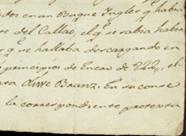 en un Buque Ingles q.e habia
del Callao, el q.e se sabia habia
q.e se hallaba descargando en
principios de Enero de 822, el
Olive Branz. En su conse
la correspondiente protexta